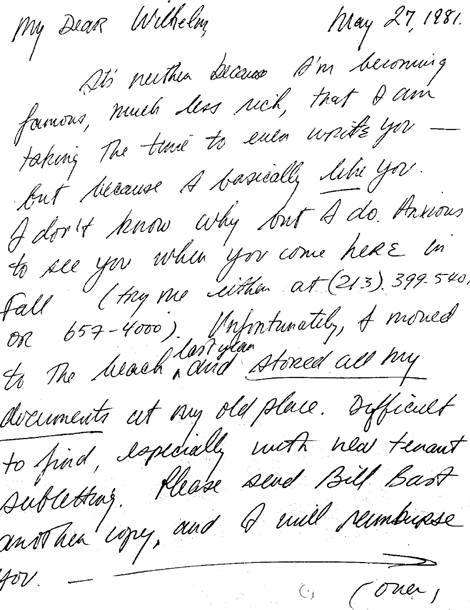 My Dear Wilhelm, May 27, 1981.
It's neither because I'm becoming
famous, much less rich, that I am
taking the time to even write you —
but because I basically like you.
I don't know why but I do. Anxious
to see you when you come here in
Fall (try me either at (213) 399-540,
or 657-4000). Unfortunately, I moved
last year
to the beach and stored all my
documents at my old place. Difficult
to find, especially with new tenant
subletting. Please send Bill Bast
another copy, and I will reimburse
you. —
(over,